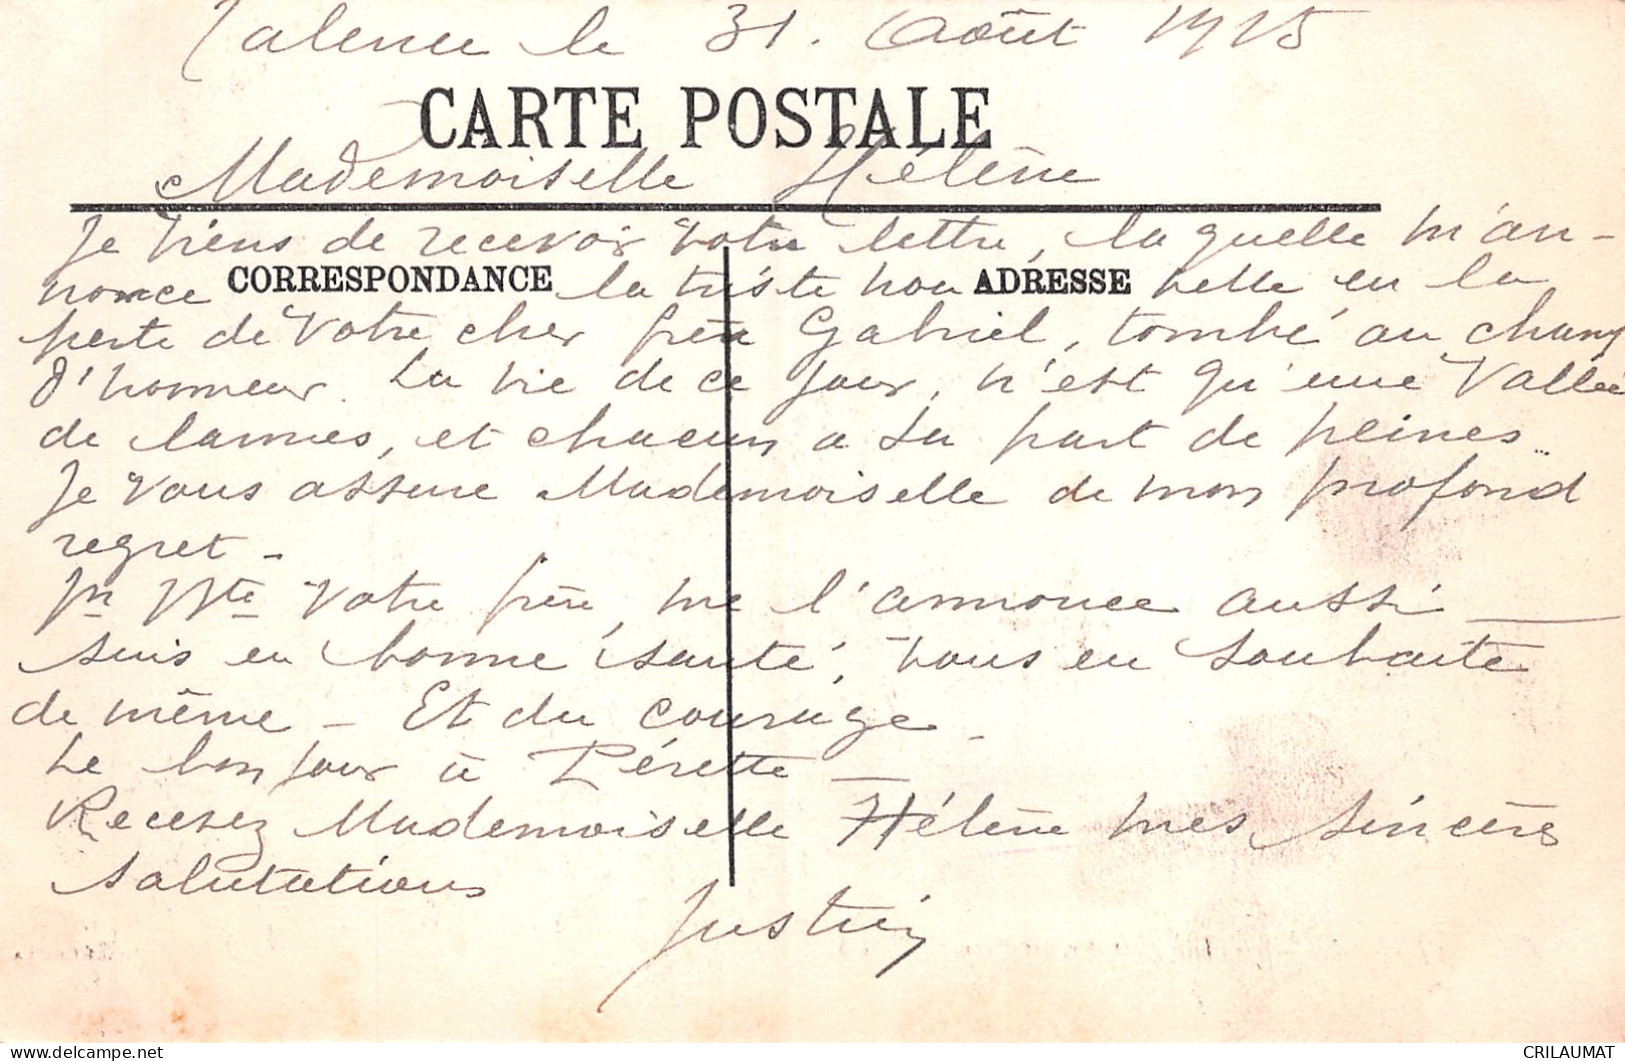 Talence le 31. Août 1915
CARTE POSTALE
Mademoiselle Hélène
Je viens de recevoir votre lettre, laquelle m'an-
nonce CORRESPONDANCE la triste nou ADRESSE velle en la
perte de votre cher frère Gabriel, tombé au champ
d'honneur. La vie de ce jour, n'est qu'une Vallée
de larmes, et chacun a sa part de peines..
Je vous assure Mademoiselle de mon profond
regret -
votre frère, me l'annonce aussi
suis en bonne santé, vous en souhaite
de même - Et du courage
Le bonjour à Pérette -
Recevez Mademoiselle Hélène mes sincères
salutations
Justin
CRILAUMAT